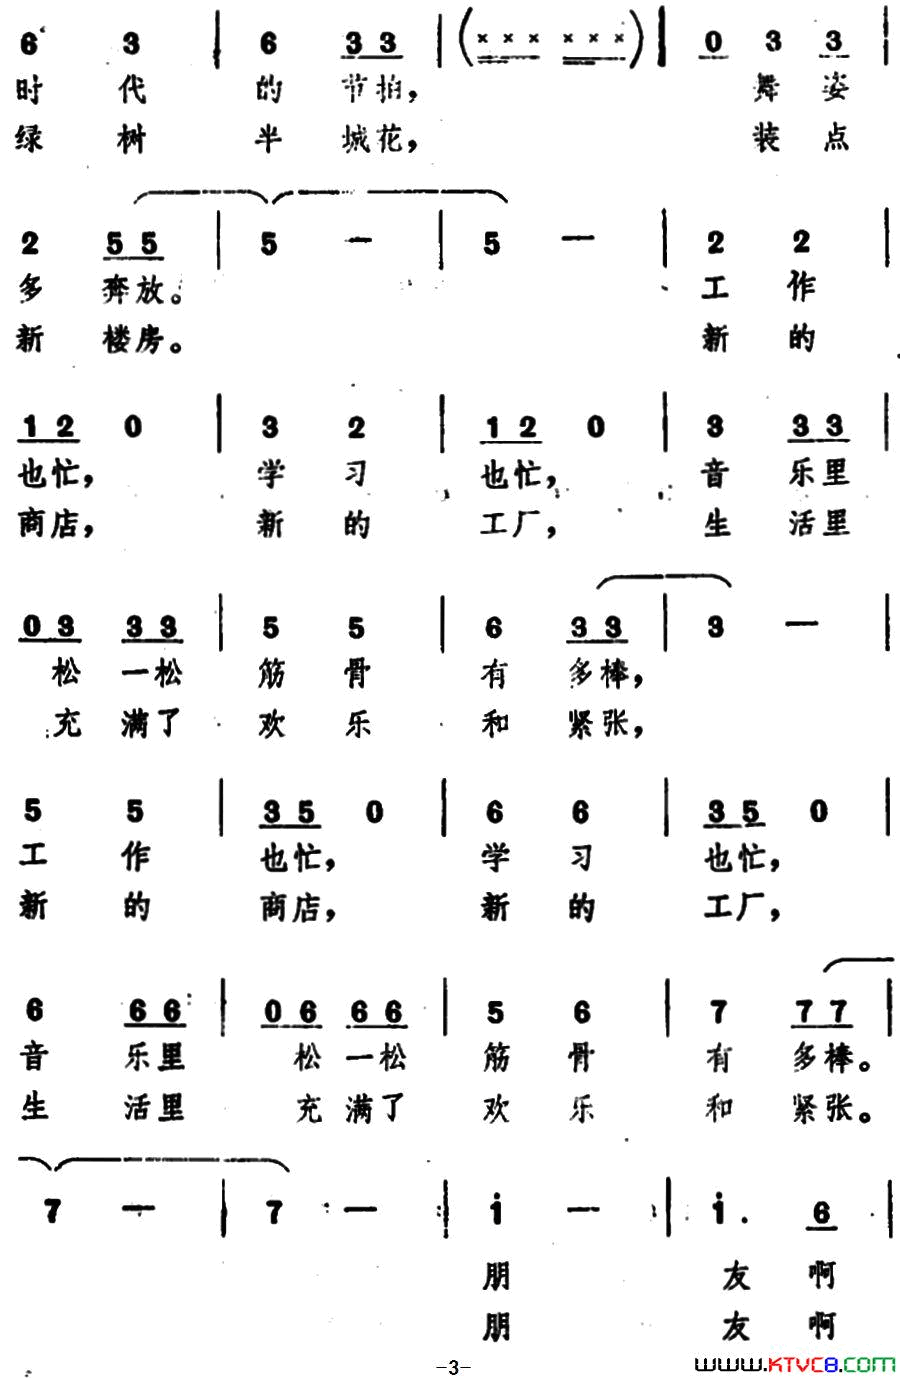 6 3 | 6 3 3 | (× × × × × ×) | 0 3 3 |
时 代 的 节拍， 舞 姿
绿 树 半 城花， 装 点
2 5 5 | 5 — | 5 — | 2 2 |
多 奔放。 工 作
新 楼房。 新 的
1 2 0 | 3 2 | 1 2 0 | 3 3 3 |
也忙， 学 习 也忙， 音 乐里
商店， 新 的 工厂， 生 活里
0 3 3 3 | 5 5 | 6 3 3 | 3 — |
松 一松 筋 骨 有 多棒，
充 满了 欢 乐 和 紧张，
5 5 | 3 5 0 | 6 6 | 3 5 0 |
工 作 也忙， 学 习 也忙，
新 的 商店， 新 的 工厂，
6 6 6 | 0 6 6 6 | 5 6 | 7 7 7 |
音 乐里 松 一松 筋 骨 有 多棒。
生 活里 充 满了 欢 乐 和 紧张。
7 — | 7 — | i — | i . 6 |
朋 友 啊
朋 友 啊
-3-
www.KTVC8.COM